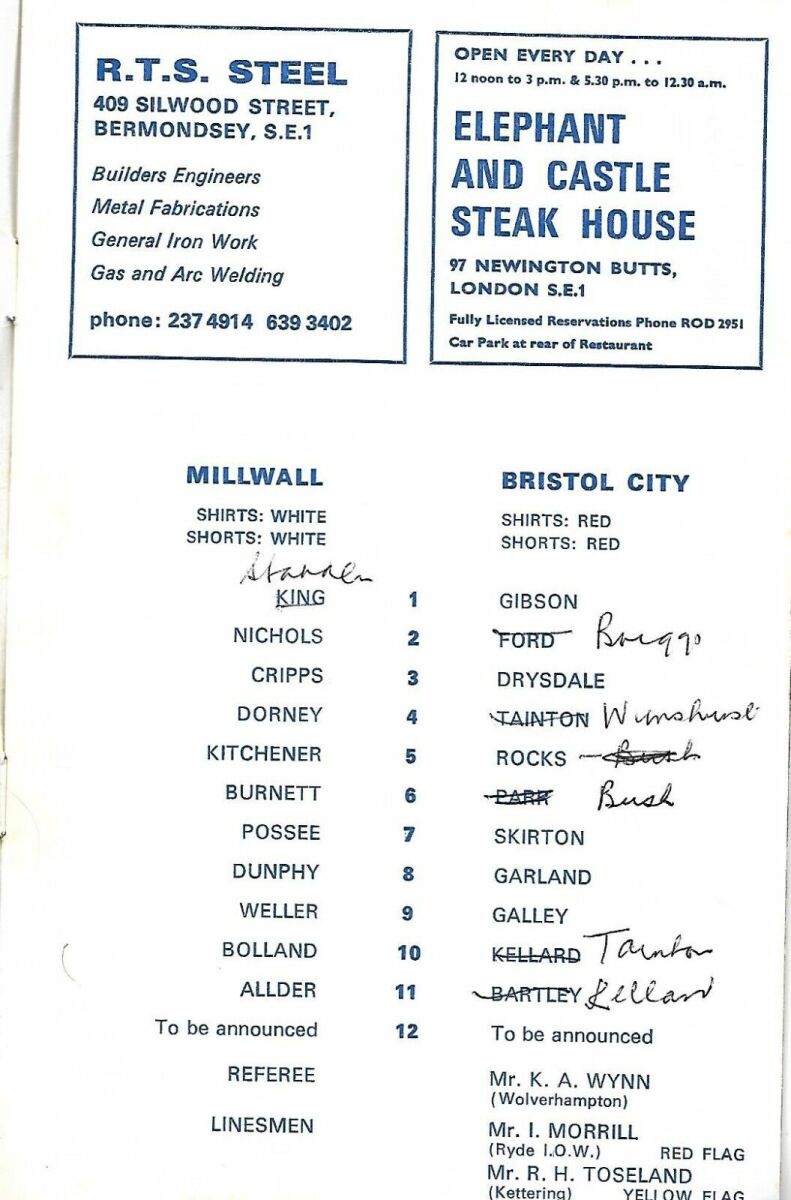 R.T.S. STEEL
409 SILWOOD STREET,
BERMONDSEY, S.E.1
Builders Engineers
Metal Fabrications
General Iron Work
Gas and Arc Welding
phone: 237 4914 639 3402
OPEN EVERY DAY . . .
12 noon to 3 p.m. & 5.30 p.m. to 12.30 a.m.
ELEPHANT
AND CASTLE
STEAK HOUSE
97 NEWINGTON BUTTS,
LONDON S.E.1
Fully Licensed Reservations Phone ROD 2951
Car Park at rear of Restaurant
MILLWALL BRISTOL CITY
SHIRTS: WHITE SHIRTS: RED
SHORTS: WHITE SHORTS: RED
Standen
KING 1 GIBSON
NICHOLS 2 FORD Briggs
CRIPPS 3 DRYSDALE
DORNEY 4 TAINTON Wimshurst
KITCHENER 5 ROCKS Bush
BURNETT 6 PARR Bush
POSSEE 7 SKIRTON
DUNPHY 8 GARLAND
WELLER 9 GALLEY
BOLLAND 10 KELLARD Tainton
ALLDER 11 BARTLEY Kellard
To be announced 12 To be announced
REFEREE Mr. K. A. WYNN
(Wolverhampton)
LINESMEN Mr. I. MORRILL
(Ryde I.O.W.) RED FLAG
Mr. R. H. TOSELAND
(Kettering) YELLOW FLAG